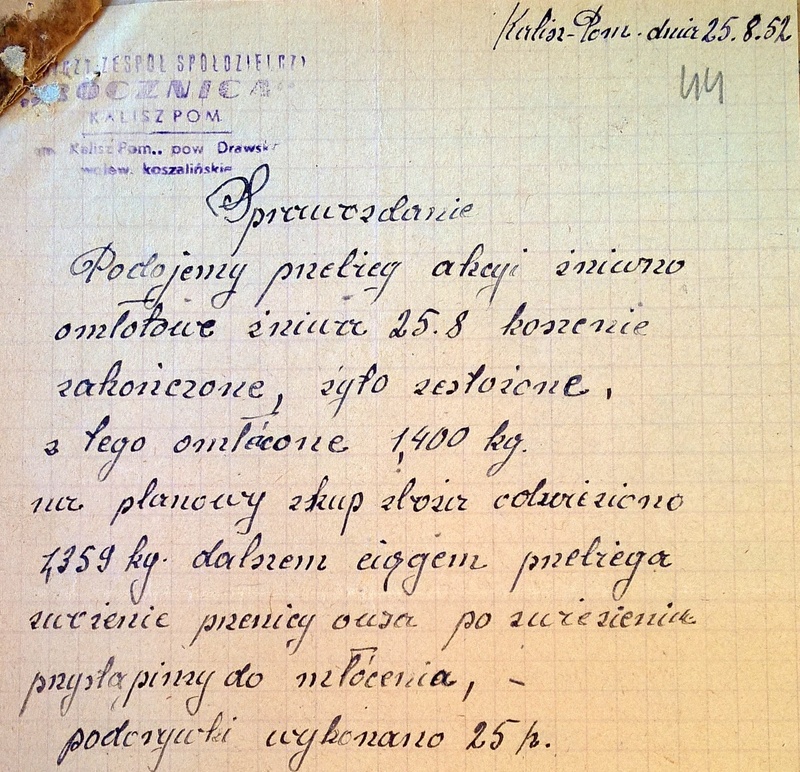 Kalisz-Pom. dnia 25.8.52
44
ZESPÓŁ SPÓŁDZIELCZY
KALISZ POM.
Kalisz Pom., pow Drawsk
wojew. koszalińskie
Sprawozdanie
Podajemy przebieg akcyi żniwno
omłotowe żniwa 25.8 koszenie
zakończone, żyto zestożone,
z tego omłócone 1,400 kg.
na planowy skup zboża odwieziono
1,359 kg. dalszem ciągem przebiega
zwożenie przenicy owsa po zwiezieniu
przystąpimy do młócenia, -
podorywki wykonano 25 h.